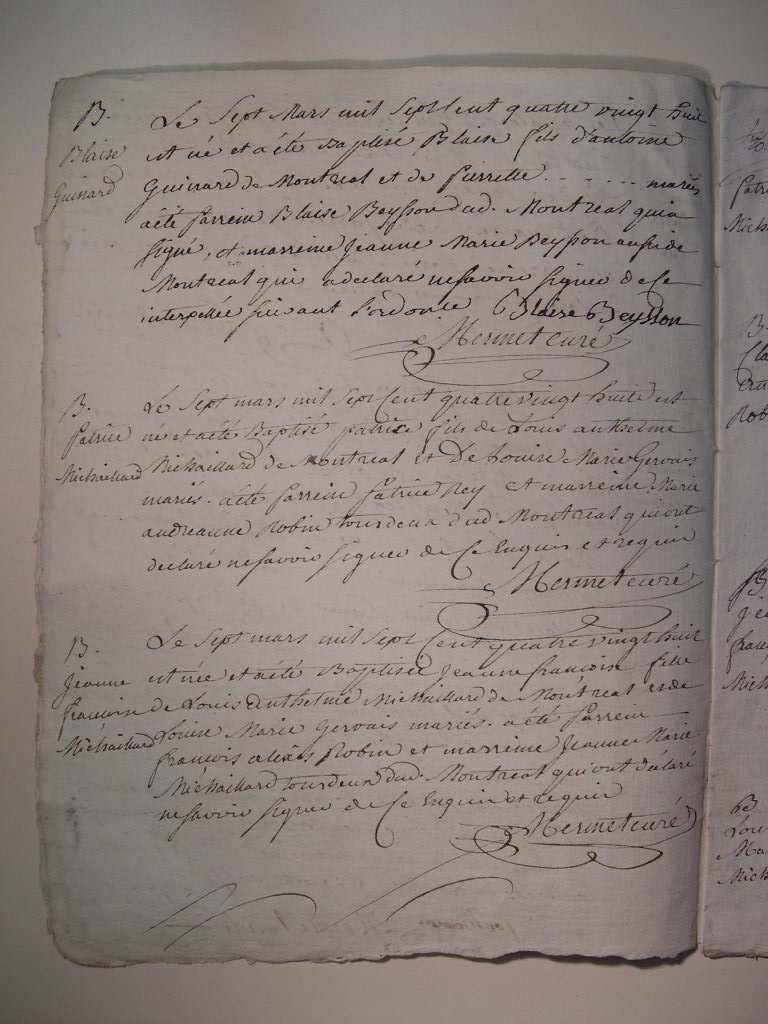 B.
Blaise
Guinard
Le Sept Mars mil Sept Cent quatre vingt huit
est né et a été Baptisé Blaise fils d'antoine
Guinard de Montreal et de pierrette ....... mariés
a été parrein Blaise Beysson dud. Montreal qui a
signé, et marreine Jeanne Marie Beysson aussi de
Montreal qui a declaré ne savoir signer de Ce
interpellée suivant l'ordonce Blaise Beysson
Mermet curé
B.
patrice
Michaillard
Le Sept mars mil Sept Cent quatre vingt huite est
né et a été Baptisé patrice fils de Louis anthelme
Michaillard de Montreal et De Louise Marie Gervais
mariés. a été parrein patrice Rey et marreine Marie
andreanne Robin tous deux dud Montreal qui ont
declaré ne savoir signer de Ce Enquis et requis
Mermet curé
B.
Jeanne
françoise
Michaillard
Le Sept mars mil Sept Cent quatre vingt huit
est née et a été Baptisée Jeanne françoise fille
de Louis anthelme Michaillard de Montreal et de
Louise Marie Gervais mariés. a été parrein
françois alexis Robin et marreine Jeanne Marie
Michaillard tous deux dud. Montreal qui ont déclaré
ne savoir signer de Ce Enquis et requis
Mermet curé